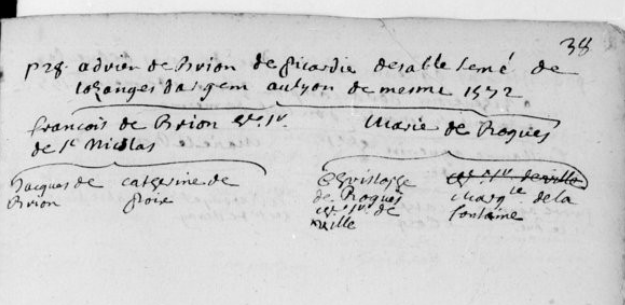 38
p28. adrien de Brion de picardie de sable semé de
lozanges d'argent au lyon de mesme 1572
francois de Brion Sr.
de St Nicolas
Marie de Roques
Jacques de
Brion
catherine de
poix
Christofle
de Roques
Sr. de
ville
Marg.te de la
fontaine